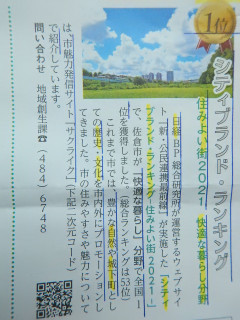 1位
シティブランド・ランキング
住みよい街2021 快適な暮らし分野
日経BP 総合研究所が運営するウェブサイ
ト「新・公民連携最前線」が実施した「シティ
ブランド・ランキング-住みよい街2021-」
で、佐倉市が「快適な暮らし」分野で全国一
位を獲得しました。(総合ランキングは53位)
これまで市では、豊かな自然や城下町とし
ての歴史・文化を市内外にプロモーションし
てきました。市の住みやすさや魅力について
は、市魅力発信サイト「サクライク」(下記二次元コード)
で紹介しています。
問い合わせ 地域創生課☎(484)6748